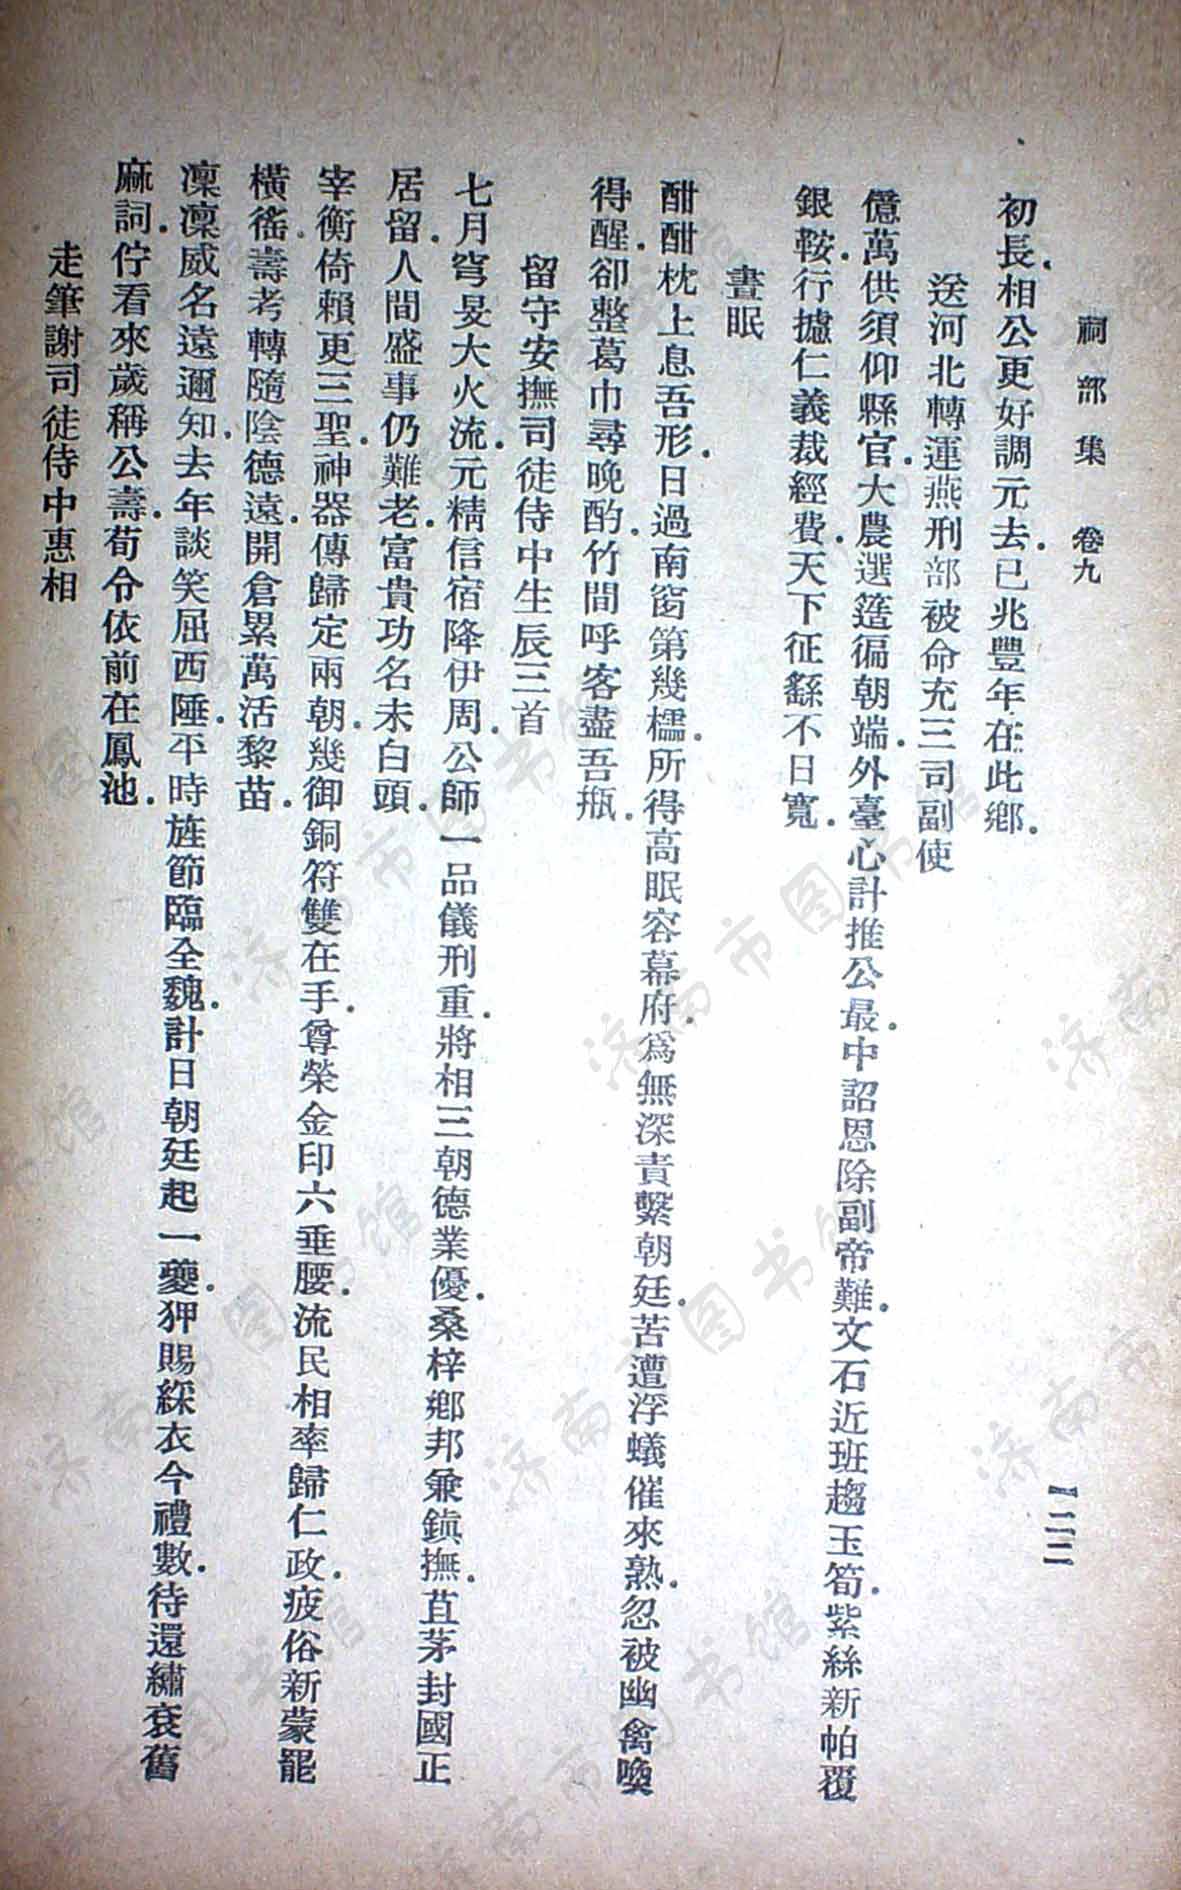 祠部集 卷九 一二二
初長.相公更好調元去.已兆豐年在此鄉.
送河北轉運燕刑部被命充三司副使
億萬供須仰縣官.大農選簉徧朝端.外臺心計推公最.中詔恩除副帝難.文石近班趨玉筍.紫絲新帕覆
銀鞍.行攄仁義裁經費.天下征繇不日寬.
晝眠
酣酣枕上息吾形.日過南窗第幾櫺.所得高眠容幕府.爲無深責繫朝廷.苦遭浮蟻催來熟.忽被幽禽喚
得醒.卻整葛巾尋晚酌.竹間呼客盡吾瓶.
留守安撫司徒侍中生辰三首
七月穹旻大火流.元精信宿降伊周.公師一品儀刑重.將相三朝德業優.桑梓鄉邦兼鎮撫.苴茅封國正
居留.人間盛事仍難老.富貴功名未白頭.
宰衡倚賴更三聖.神器傳歸定兩朝.幾御銅符雙在手.尊榮金印六垂腰.流民相率歸仁政.疲俗新蒙罷
橫徭.壽考轉隨陰德遠.開倉累萬活黎苗.
凜凜威名遠邇知.去年談笑屈西陲.平時旌節臨全魏.計日朝廷起一夔.狎賜綵衣今禮數.待還繡衮舊
麻詞.佇看來歲稱公壽.荀令依前在鳳池.
走筆謝司徒侍中惠相
济南市图书馆